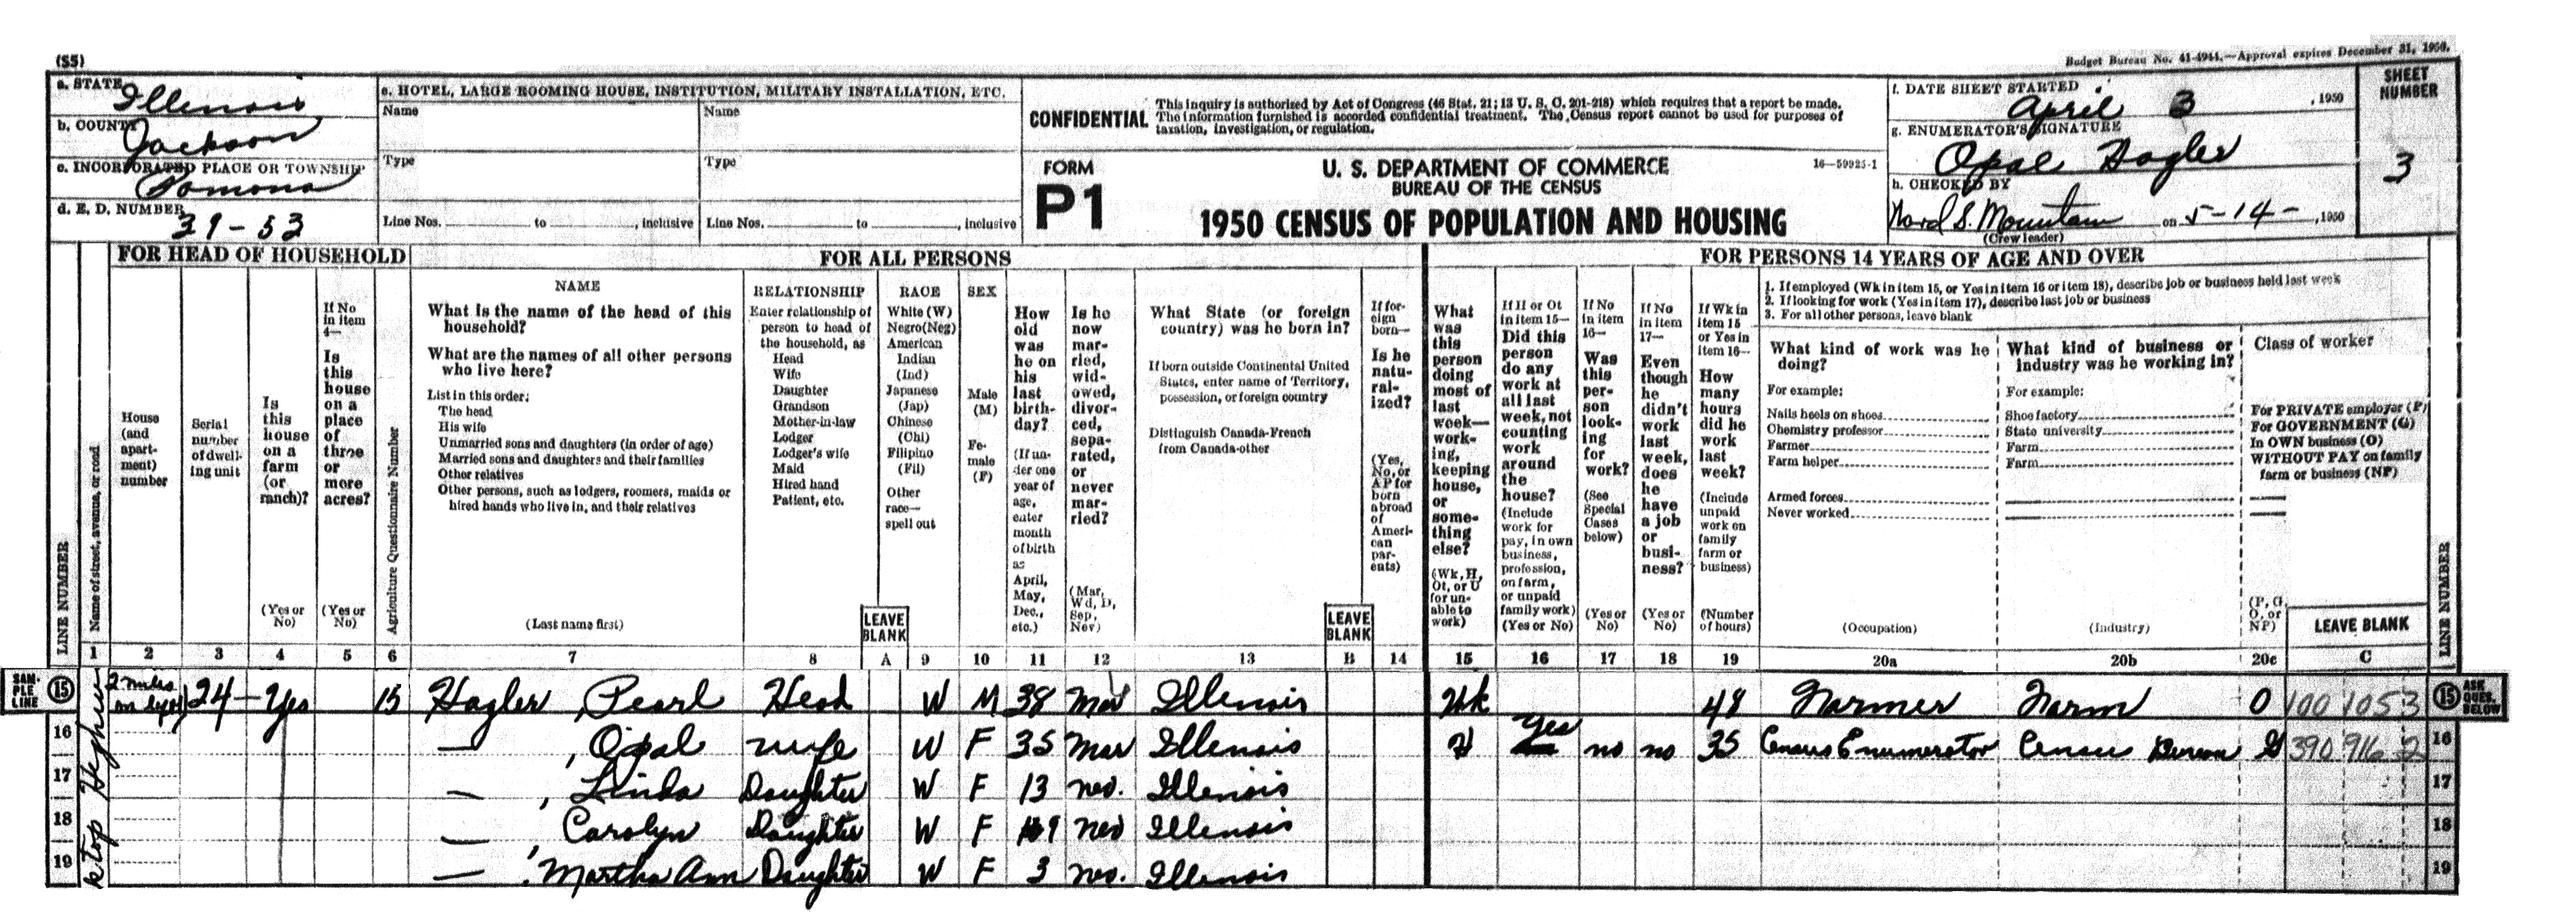 (S5)
Budget Bureau No. 41-4944.—Approval expires December 31, 1950.
a. STATE Illinois
b. COUNTY Jackson
c. INCORPORATED PLACE OR TOWNSHIP Pomona
d. E. D. NUMBER 39-53
e. HOTEL, LARGE ROOMING HOUSE, INSTITUTION, MILITARY INSTALLATION, ETC.
Name Name
Type Type
Line Nos. to , inclusive Line Nos. to , inclusive
CONFIDENTIAL
This inquiry is authorized by Act of Congress (46 Stat. 21; 13 U. S. C. 201-218) which requires that a report be made.
The information furnished is accorded confidential treatment. The Census report cannot be used for purposes of
taxation, investigation, or regulation.
FORM
P1
U. S. DEPARTMENT OF COMMERCE
BUREAU OF THE CENSUS
16—59925-1
1950 CENSUS OF POPULATION AND HOUSING
f. DATE SHEET STARTED April 3 , 1950
g. ENUMERATOR'S SIGNATURE
Opal Hagler
h. CHECKED BY
Mountain on 5-14- , 1950
(Crew leader)
SHEET
NUMBER
3
FOR HEAD OF HOUSEHOLD
FOR ALL PERSONS
FOR PERSONS 14 YEARS OF AGE AND OVER
LINE NUMBER
Name of street, avenue, or road
House
(and
apart-
ment)
number
Serial
number
of dwell-
ing unit
Is
this
house
on a
farm
(or
ranch)?
(Yes or
No)
If No
in item
4—
Is
this
house
on a
place
of
three
or
more
acres?
(Yes or
No)
Agriculture Questionnaire Number
NAME
What is the name of the head of this
household?
What are the names of all other persons
who live here?
List in this order:
The head
His wife
Unmarried sons and daughters (in order of age)
Married sons and daughters and their families
Other relatives
Other persons, such as lodgers, roomers, maids or
hired hands who live in, and their relatives
(Last name first)
RELATIONSHIP
Enter relationship of
person to head of
the household, as
Head
Wife
Daughter
Grandson
Mother-in-law
Lodger
Lodger's wife
Maid
Hired hand
Patient, etc.
LEAVE
BLANK
RACE
White (W)
Negro(Neg)
American
Indian
(Ind)
Japanese
(Jap)
Chinese
(Chi)
Filipino
(Fil)
Other
race—
spell out
SEX
Male
(M)
Fe-
male
(F)
How
old
was
he on
his
last
birth-
day?
(If un-
der one
year of
age,
enter
month
of birth
as
April,
May,
Dec.,
etc.)
Is he
now
mar-
ried,
wid-
owed,
divor-
ced,
sepa-
rated,
or
never
mar-
ried?
(Mar,
Wd, D,
Sep,
Nev)
What State (or foreign
country) was he born in?
If born outside Continental United
States, enter name of Territory,
possession, or foreign country
Distinguish Canada-French
from Canada-other
LEAVE
BLANK
If for-
eign
born—
Is he
natu-
ral-
ized?
(Yes,
No, or
AP for
born
abroad
of
Ameri-
can
par-
ents)
What
was
this
person
doing
most of
last
week—
work-
ing,
keeping
house,
or
some-
thing
else?
(Wk, H,
Ot, or U
for un-
able to
work)
If H or Ot
in item 15—
Did this
person
do any
work at
all last
week, not
counting
work
around
the
house?
(Include
work for
pay, in own
business,
profession,
on farm,
or unpaid
family work)
(Yes or No)
If No
in item
16—
Was
this
per-
son
look-
ing
for
work?
(See
Special
Cases
below)
(Yes or
No)
If No
in item
17—
Even
though
he
didn't
work
last
week,
does
he
have
a job
or
busi-
ness?
(Yes or
No)
If Wk in
item 15
or Yes in
item 16—
How
many
hours
did he
work
last
week?
(Include
unpaid
work on
family
farm or
business)
(Number
of hours)
1. If employed (Wk in item 15, or Yes in item 16 or item 18), describe job or business held last week
2. If looking for work (Yes in item 17), describe last job or business
3. For all other persons, leave blank
What kind of work was he
doing?
For example:
Nails heels on shoes
Chemistry professor
Farmer
Farm helper
Armed forces
Never worked
(Occupation)
What kind of business or
industry was he working in?
For example:
Shoe factory
State university
Farm
Farm
(Industry)
Class of worker
For PRIVATE employer (P)
For GOVERNMENT (G)
In OWN business (O)
WITHOUT PAY on family
farm or business (NP)
(P, G,
O, or
NP)
LEAVE BLANK
LINE NUMBER
1 2 3 4 5 6 7 8 A 9 10 11 12 13 B 14 15 16 17 18 19 20a 20b 20c C
SAM-
PLE
LINE
15 2 miles 24 — Yes 15 Hagler, Pearl Head W M 38 Mar Illinois Wk 48 Farmer Farm O 100 105 3 15
ASK
QUES.
BELOW
16 — , Opal wife W F 35 Mar Illinois H Yes no no 35 Census Enumerator Census Bureau G 390 916 2 16
17 — , Linda Daughter W F 13 nev. Illinois 17
18 — , Carolyn Daughter W F 9 nev Illinois 18
19 — , Martha Ann Daughter W F 3 nev. Illinois 19